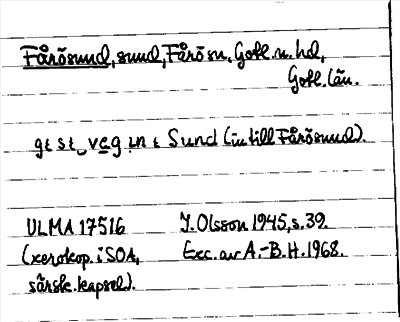 Fårösund, sund, Fårö sn, Gotl. n. hd,
Gotl. län.
Sund (in till Fårösund).
ULMA 17516 J. Olsson 1945, s. 39.
(xerokop. i SOA, Exc. av A.-B. H. 1968.
särsk. kapsel).